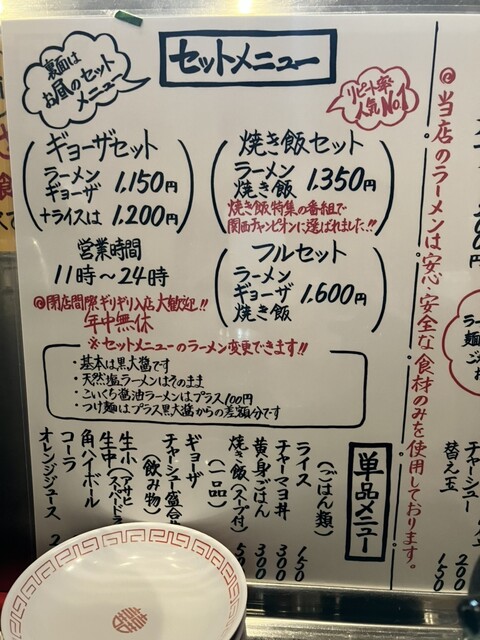 セットメニュー
裏面は
お昼のセット
メニュー
リピート率
人気No.1
ギョーザセット
ラーメン
ギョーザ 1,150円
+ライスは 1,200円
焼き飯セット
ラーメン
焼き飯 1,350円
焼き飯特集の番組で
関西チャンピオンに選ばれました!!
営業時間
11時〜24時
@閉店間際ギリギリ入店大歓迎!!
年中無休
フルセット
ラーメン
ギョーザ 1,600円
焼き飯
※セットメニューのラーメン変更できます!!
・基本は黒大醤です
・天然塩ラーメンはそのまま
・こいくち醤油ラーメンはプラス100円
・つけ麺はプラス黒大醤からの差額分です
@当店のラーメンは安心・安全な食材のみを使用しております。
チャーシュー 200
替え玉 150
単品メニュー
(ごはん類)
ライス 150
チャーマヨ丼 300
黄身ごはん 300
焼き飯(スープ付)
(一品)
ギョーザ
チャーシュー盛合
(飲み物)
生小(アサヒ
生中(スーパードラ
角ハイボール
コーラ
オレンジジュース